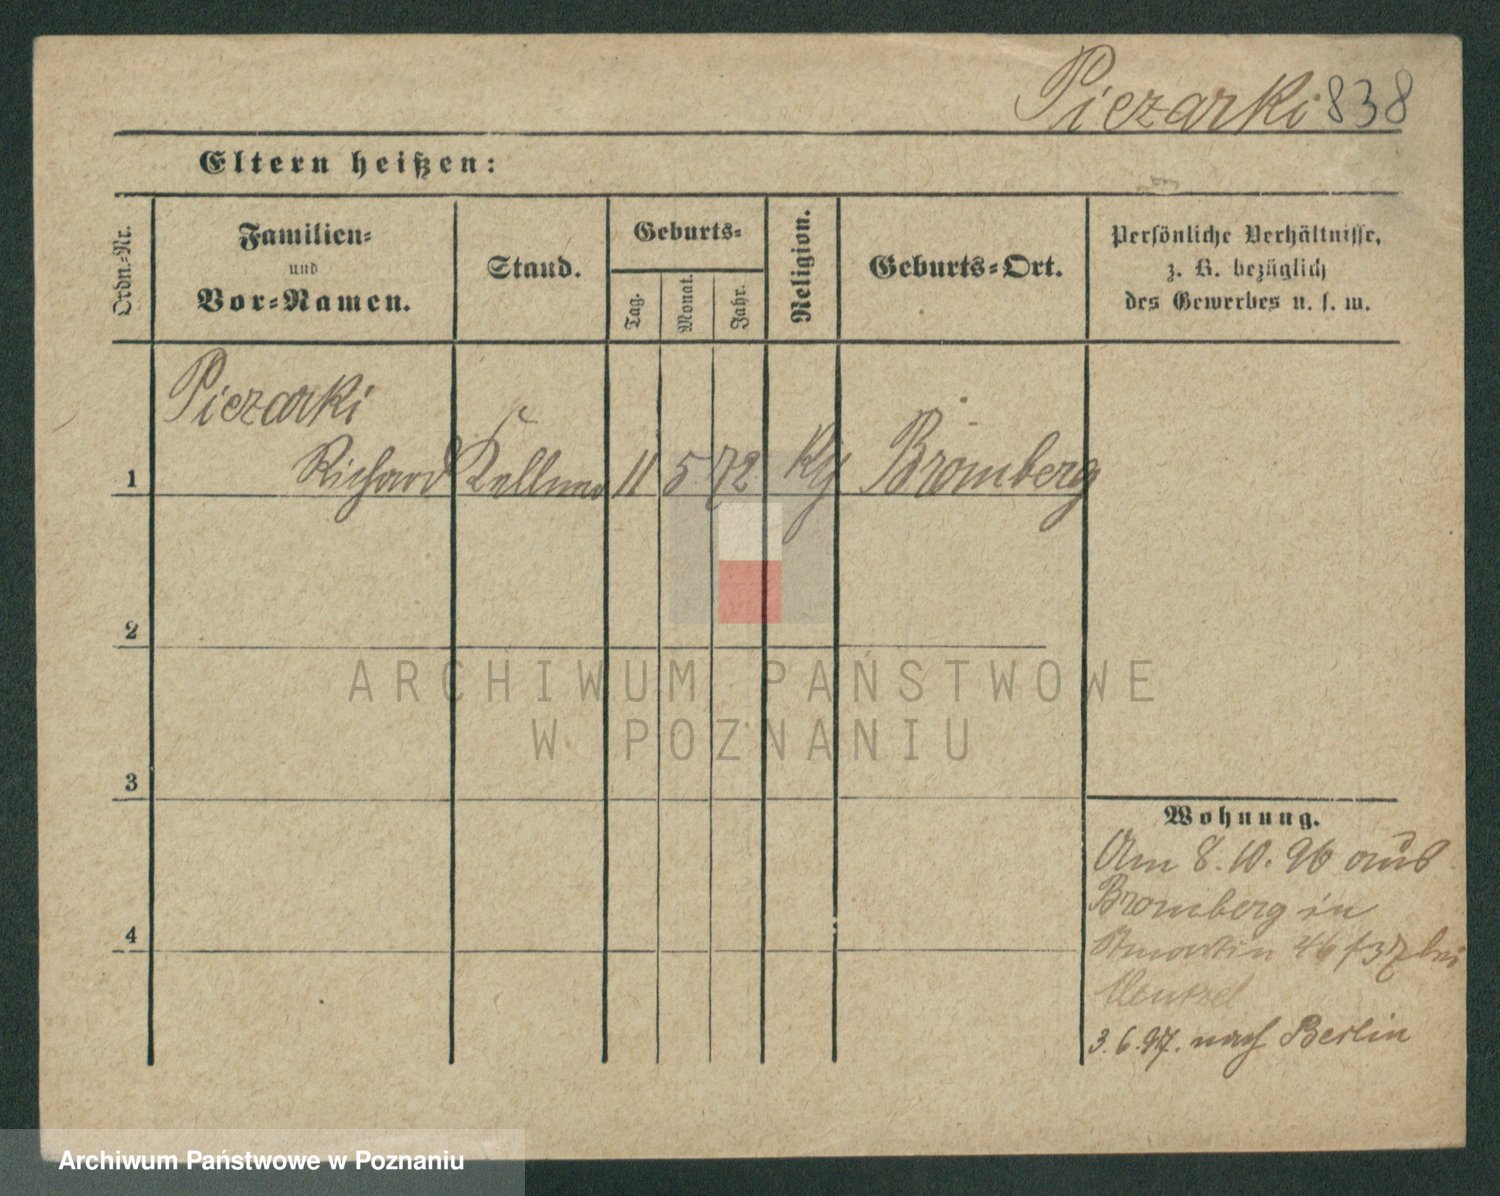 Piezarki 838
Eltern heißen:
Ordn.-Nr.
Familien-
und
Vor-Namen.
Stand.
Geburts-
Tag.
Monat.
Jahr.
Religion.
Geburts-Ort.
Persönliche Verhältnisse,
z. B. bezüglich
des Gewerbes u. s. w.
Piezarki
1 Richard Kellner 11 5 72 Bromberg
2
3
4
Wohnung.
Am 8.10.96 aus
Bromberg in
Stmartin 46/37 bei
3.6.97. nach Berlin
ARCHIWUM PAŃSTWOWE
W POZNANIU
Archiwum Państwowe w Poznaniu